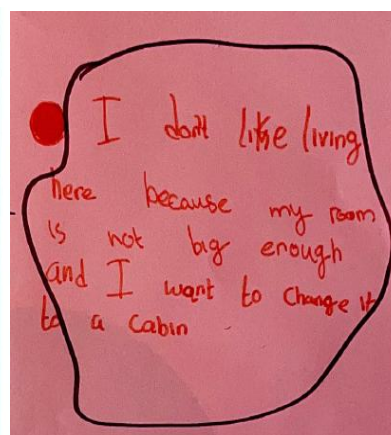 I don't like living
here because my room
is not big enough
and I want to change it
to a cabin